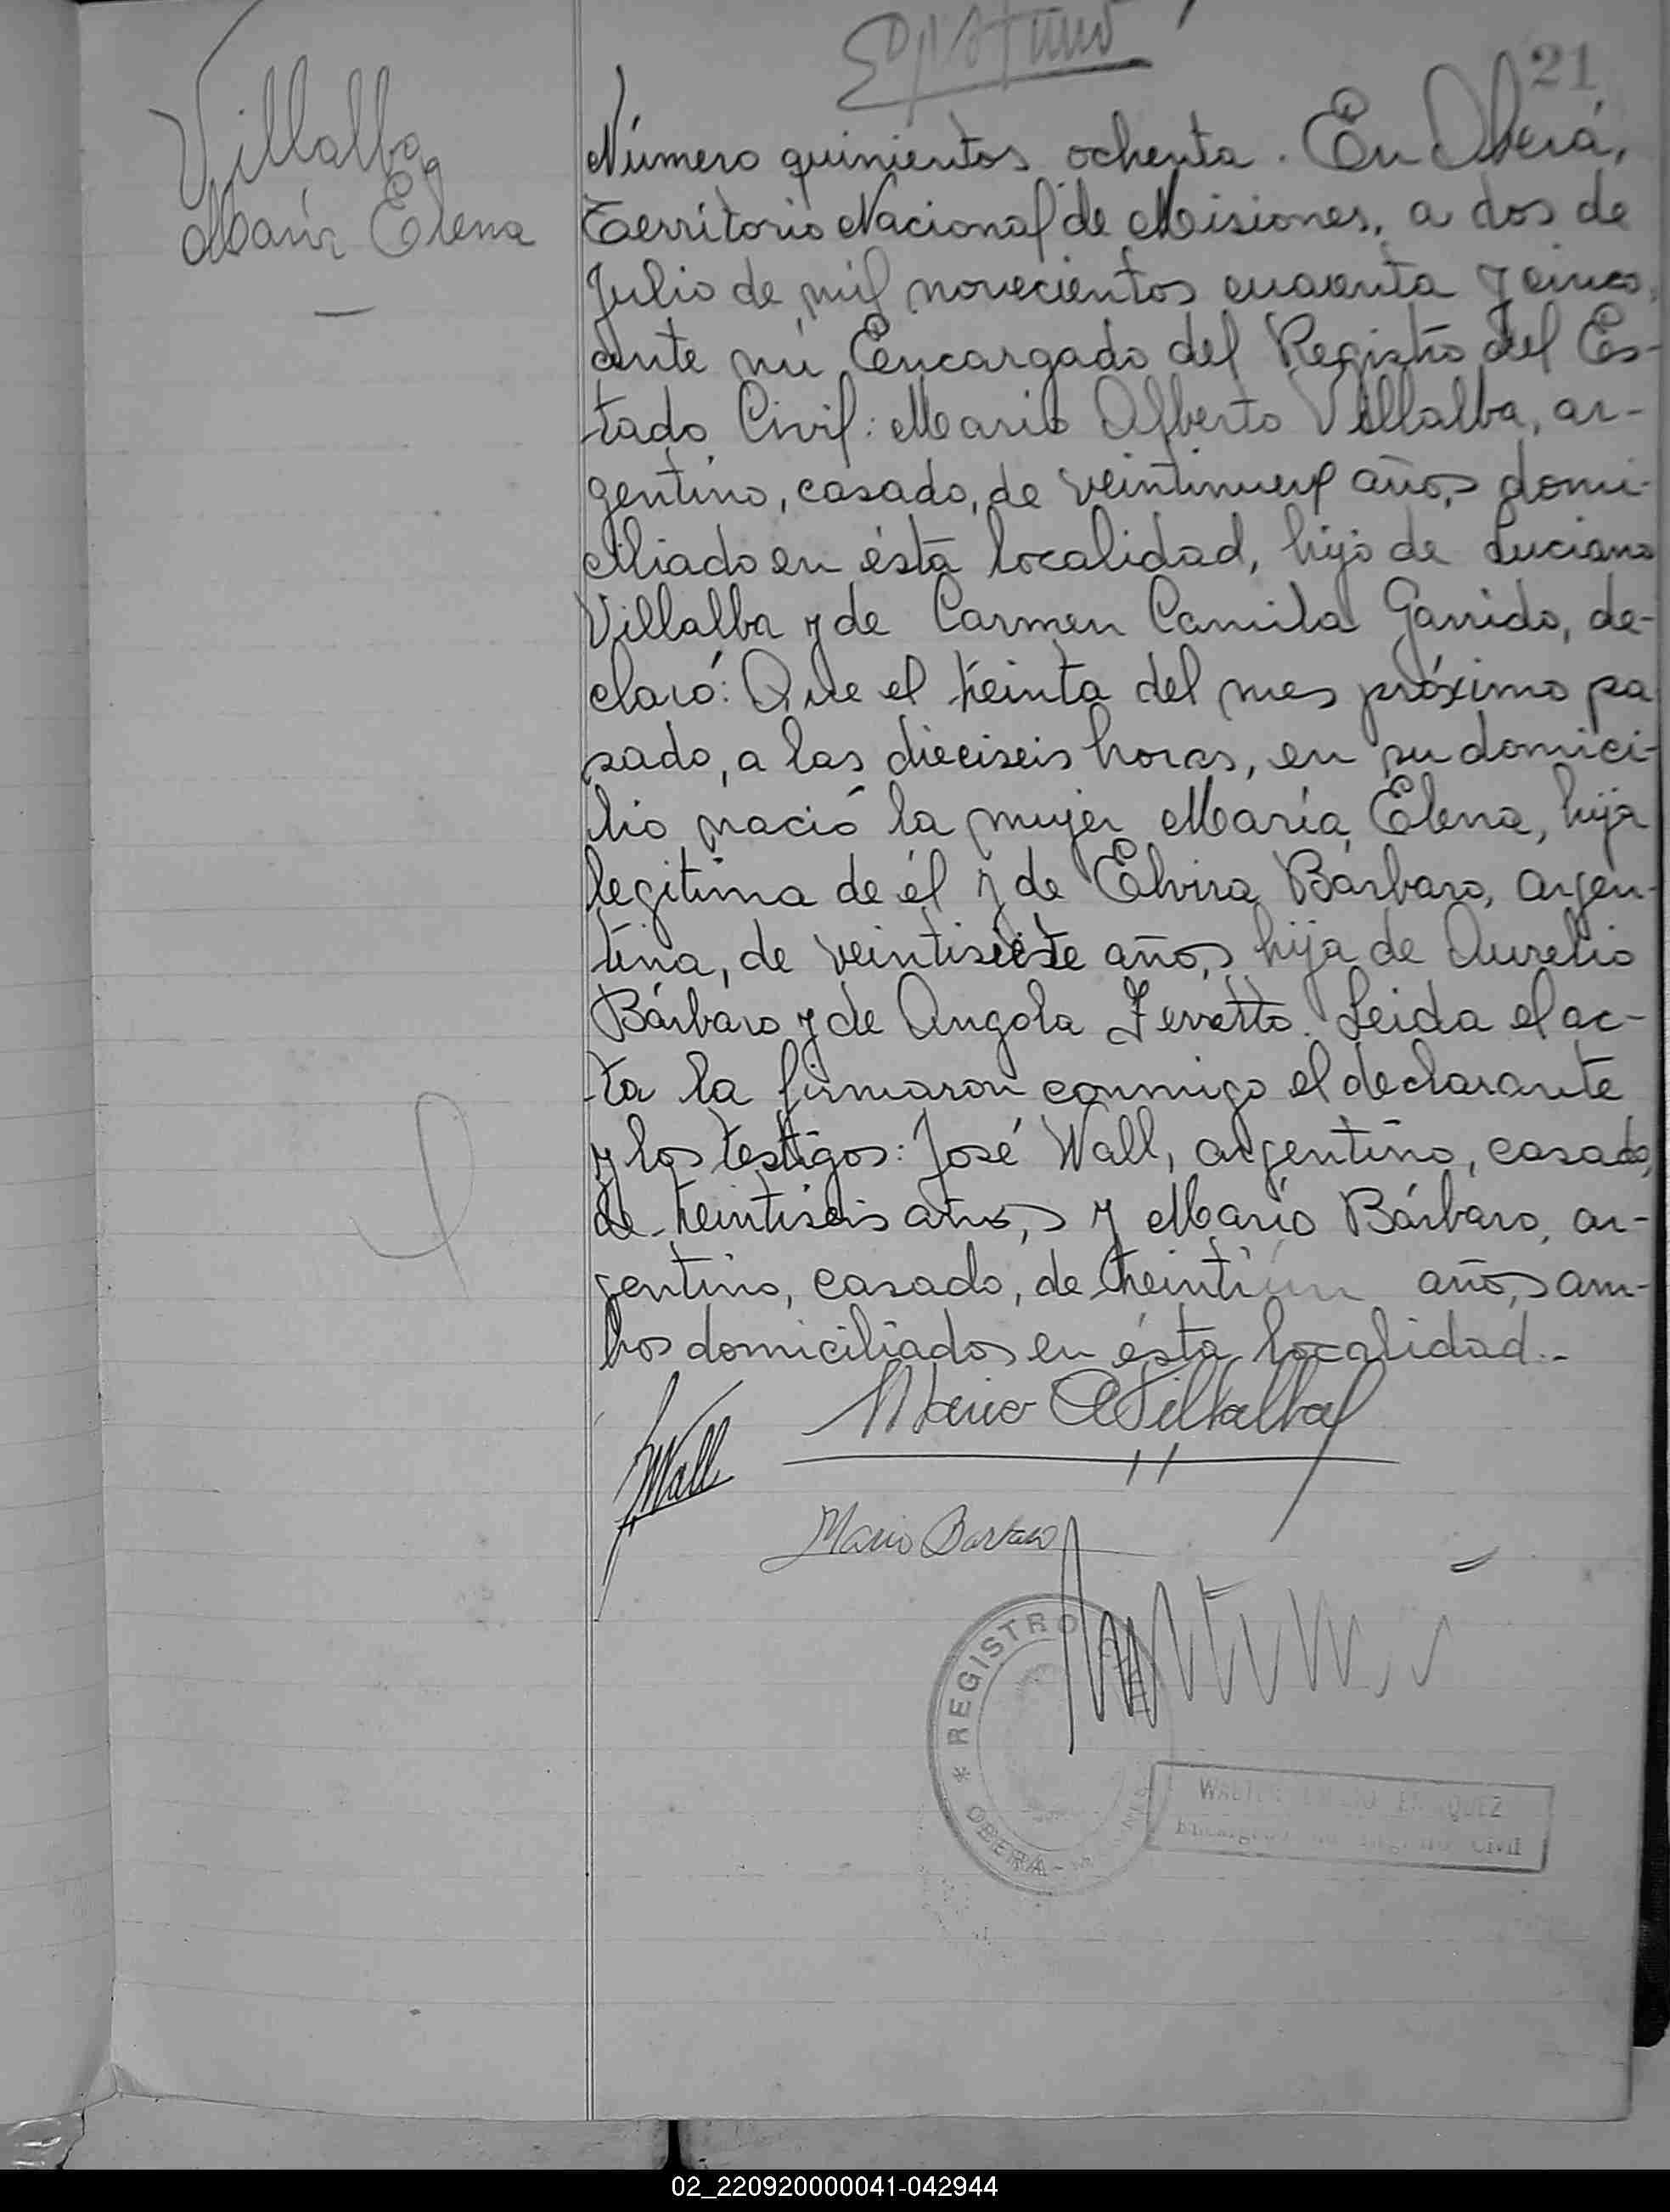 21
Villalba,
María Elena
Número quinientos ochenta. En Oberá,
Territorio Nacional de Misiones, a dos de
Julio de mil novecientos cuarenta y cinco,
ante mí Encargado del Registro del Es-
tado Civil: Mario Alberto Villalba, ar-
gentino, casado, de veintinueve años, domi-
ciliado en ésta localidad, hijo de Luciano
Villalba y de Carmen Camila Garrido, de-
claró: Que el treinta del mes próximo pa
sado, a las dieciseis horas, en su domici-
lio nació la mujer María Elena, hija
legítima de él y de Elvira Bárbaro, argen-
tina, de veintisiete años, hija de Aurelio
Bárbaro y de Angola Ferretto. Leida el ac-
ta la firmaron conmigo el declarante
y los testigos: José Wall, argentino, casado,
de treintiseis años, y Mario Bárbaro, ar-
gentino, casado, de treintiún años, am-
bos domiciliados en ésta localidad.-
Mario A Villalba
JWall
Mario Barbaro
* REGISTRO CIVIL
OBERA - MISIONES
WALTER ENRIQUEZ
Encargado Registro Civil
02_220920000041-042944